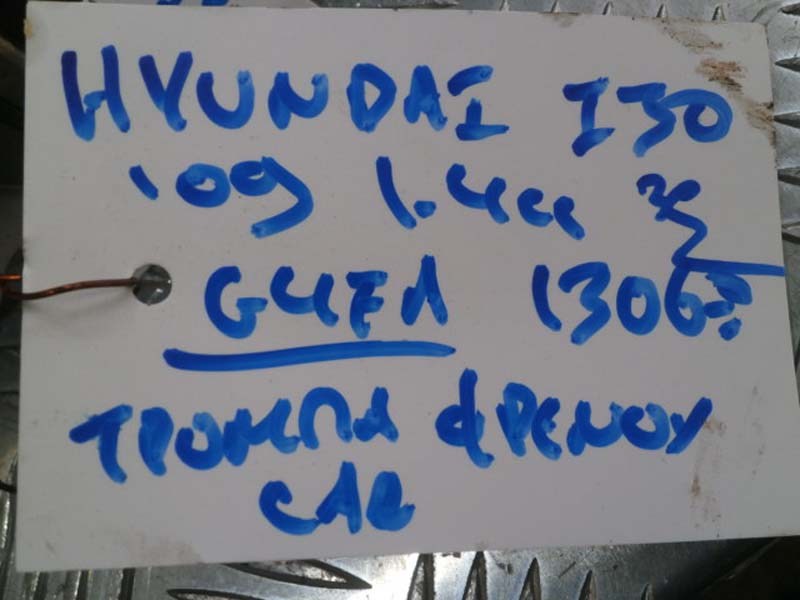 HYUNDAI I30
'09 1.4cc
G4FA 1306?
ΤΡΟΜΠΑ ΦΡΕΝΟΥ
CAB